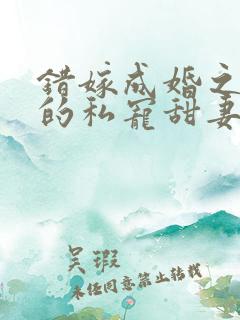 错嫁成婚之
的私宠甜妻
吴瑕
未经同意禁止转载